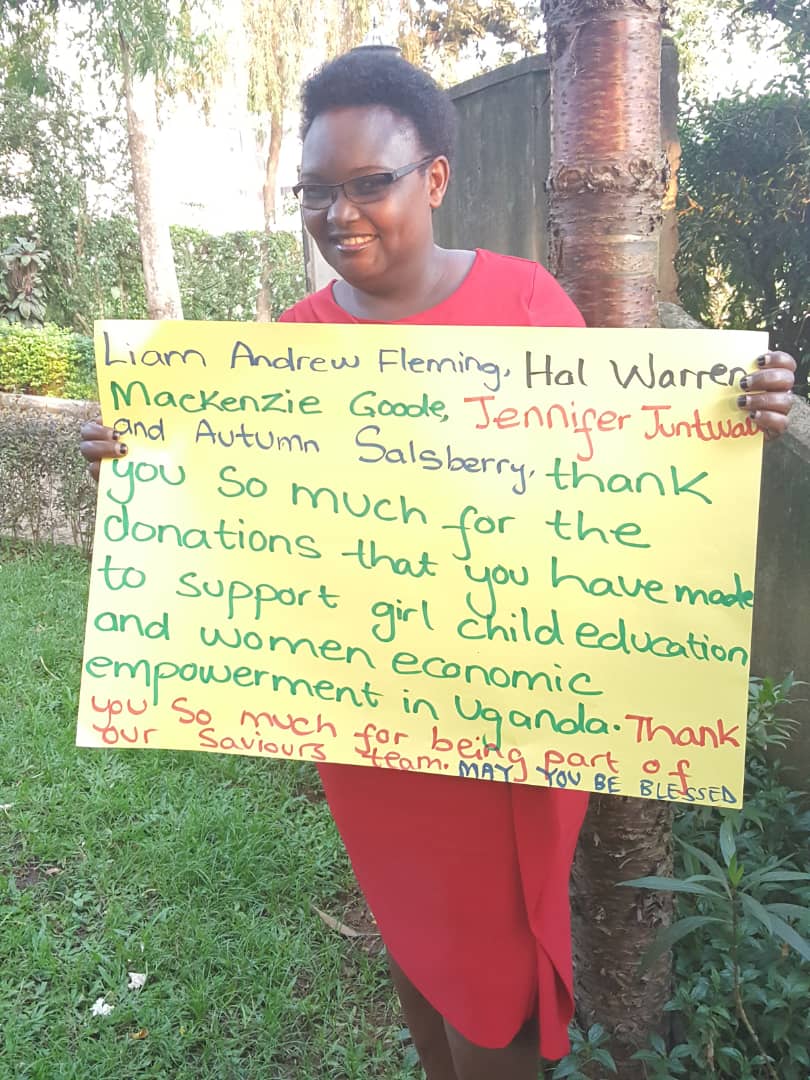 Liam Andrew Fleming, Hal Warren
Mackenzie Goode, Jennifer
and Autumn Salsberry, thank
you so much for the
donations that you have made
to support girl child education
and women economic
empowerment in Uganda. Thank
you so much for being part of
our Saviours team. MAY YOU BE BLESSED